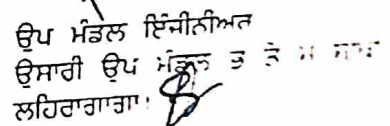 ਉਪ ਮੰਡਲ ਇੰਜੀਨੀਅਰ
ਉਸਾਰੀ ਉਪ ਮੰਡਲ ਭ ਤੇ ਮ
ਲਹਿਰਾਗਾਗਾ।